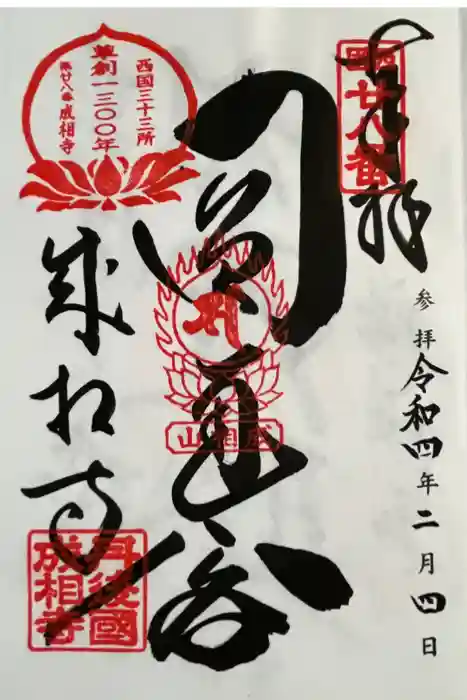 奉拝
西國
廿八番
参拝 令和四年二月四日
成相山
西国三十三所
草創一三〇〇年
第廿八番 成相寺
成相寺
丹後國
成相寺